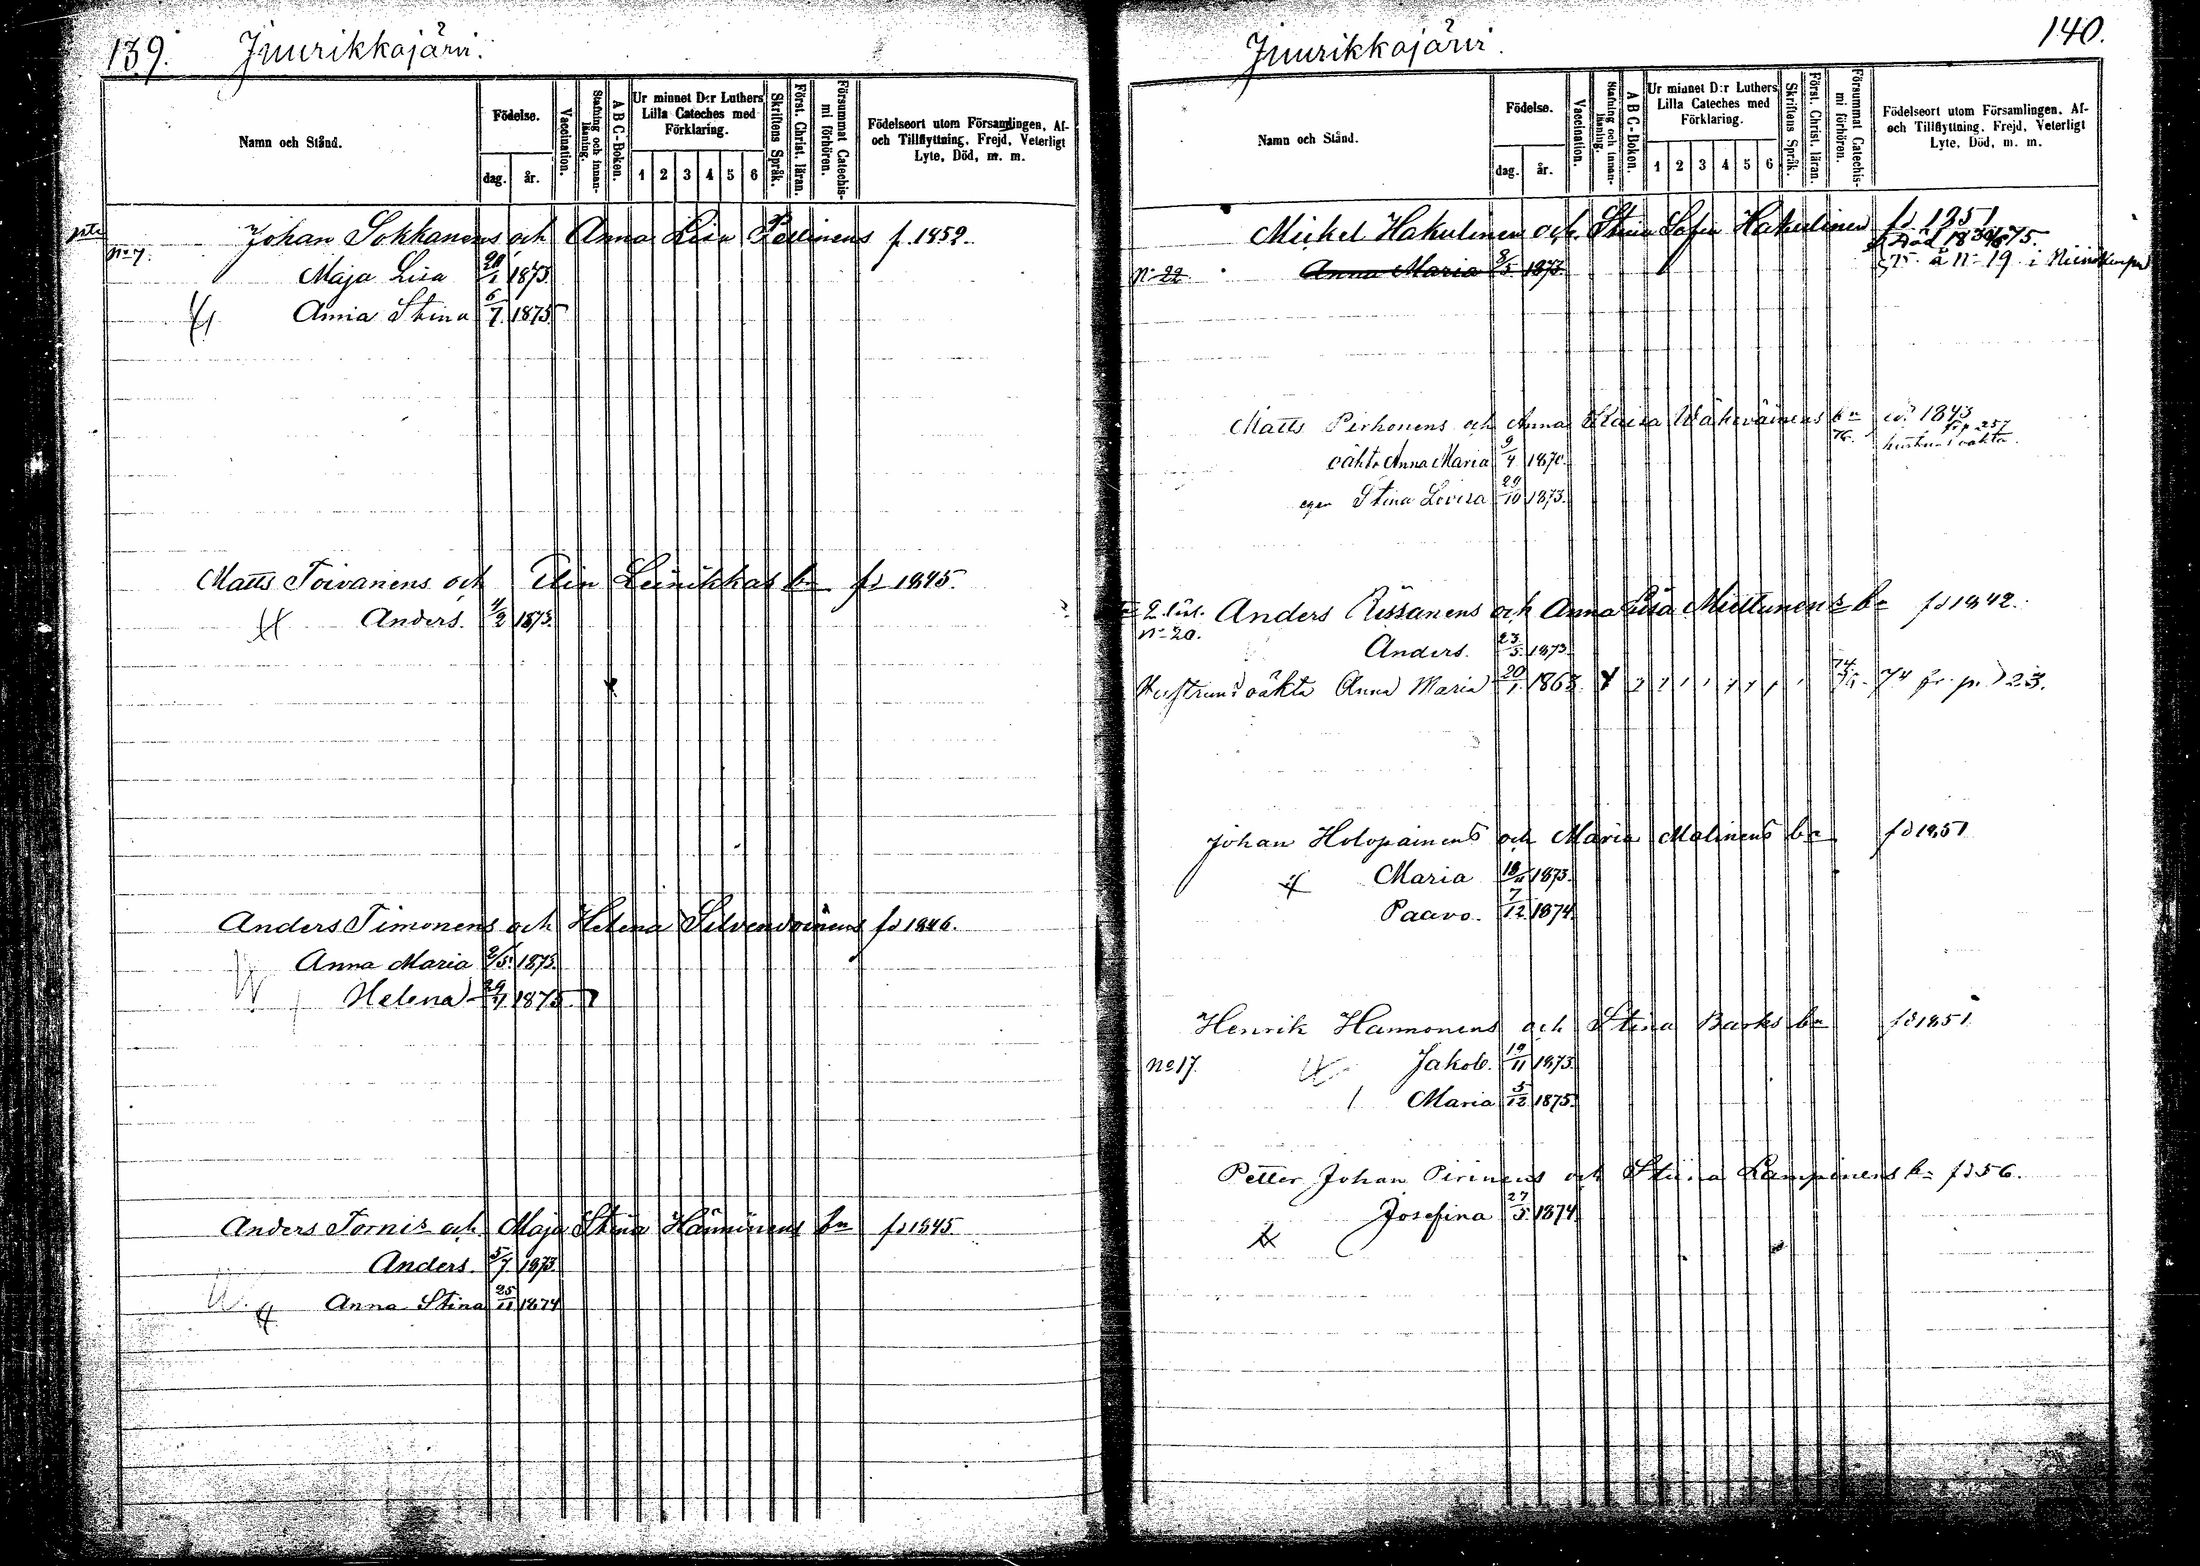 139. Juurikkajärvi.
Namn och Stånd.
Födelse.
dag. år.
Vaccination.
Stafning och innanläsning.
A B C-Boken.
Ur minnet D:r Luthers Lilla Cateches med Förklaring.
1 2 3 4 5 6
Skriftens Språk.
Först. Christ. läran.
Försummat Catechismi förhören.
Födelseort utom Församlingen, Af- och Tillflyttning, Frejd, Veterligt Lyte, Död, m. m.
Johan Sokkanens och Anna Lisa f. 1852.
No 7.
Maja Lisa 1873.
Anna Stina 6/7 1875
Matts Toivanens och Elin Leinikkas bn fd 1845.
Anders. 4/2 1873.
Anders Timonens och Helena Silvendoinens fd 1846.
Anna Maria 2/5. 1873.
Helena 29/7. 1875
Anders Tornis och Maja Stina Hänninens bn fd 1845.
Anders. 5/7. 1873.
Anna Stina 25/11 1874
Juurikkajärvi. 140.
Namn och Stånd.
Födelse.
dag. år.
Vaccination.
Stafning och innanläsning.
A B C-Boken.
Ur minnet D:r Luthers Lilla Cateches med Förklaring.
1 2 3 4 5 6
Skriftens Språk.
Först. Christ. läran.
Försummat Catechismi förhören.
Födelseort utom Församlingen, Af- och Tillflyttning, Frejd, Veterligt Lyte, Död, m. m.
Mickel Hakulinen och Stina Sofia Hakulinen fd 1851
Död 75.
No 22 Anna Maria 8/5 1873. å No 19 i
Matts Pirhonens och Anna Kaisa Wäkeväinens bn 1843
257
oäkta Anna Maria 9/4 1870. hustruns oäkta.
egen Stina Lovisa 29/10 1873.
Anders Rissanens och Anna Lisa Miettunens bn fd 1842.
No 20.
Anders. 23/5. 1873.
Hustruns oäkta Anna Maria 20/1. 1863. 74 23.
Johan Holopainens och Maria Malinens bn fd 1851
Maria 18/11 1873.
Paavo. 7/12 1874.
Henrik Hannonens och Stina Barks bn fd 1851
No 17. Jakob. 19/11 1873.
Maria 5/12 1875.
Petter Johan Pirinens och Stina Lampinens bn fd 56.
Josefina 27/5. 1874.